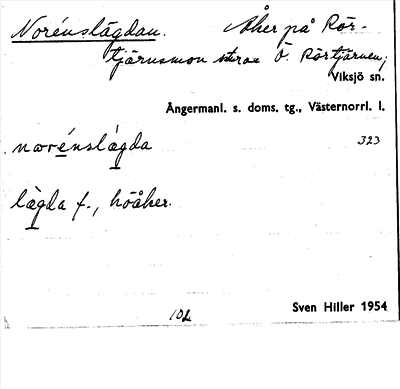 Norénslägdan. Åker på Rör-
tjärnsmon Ö. Rörtjärnen;
Viksjö sn.
Ångermanl. s. doms. tg., Västernorrl. l.
norénslägda 323
lägda f., höåker.
102 Sven Hiller 1954